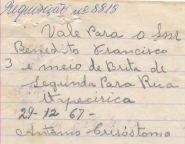 Requisição nº 8818
Vale Para o Snr
Benedito Francisco
3 e meio de Brita de
Segunda Para Rua
Itapecirica
29-12 67-
Antonio Crisóstomo